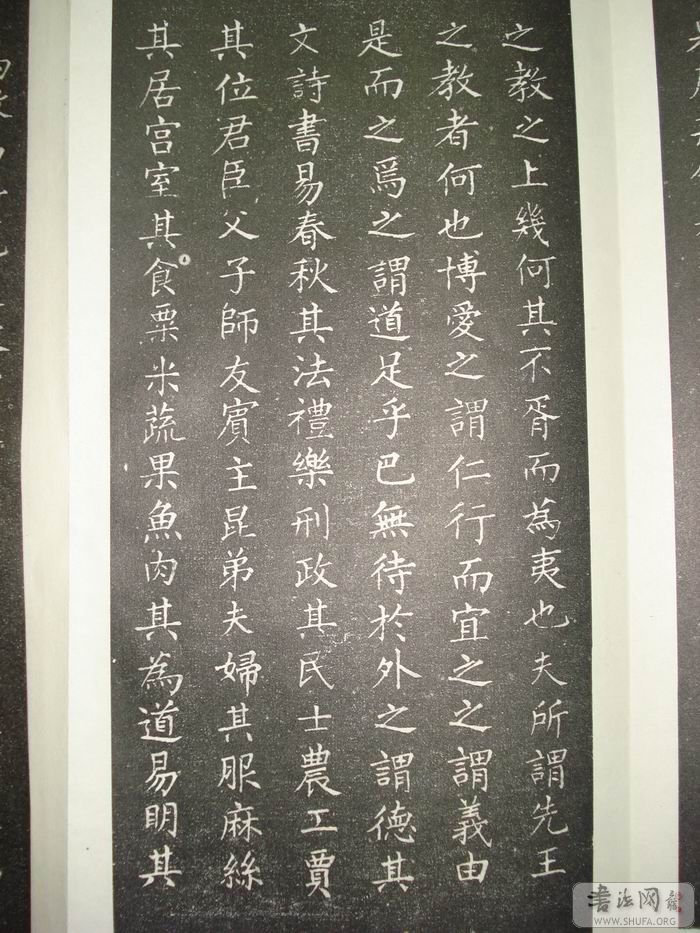 之教之上幾何其不胥而為夷也夫所謂先王
之教者何也博愛之謂仁行而宜之之謂義由
是而之爲之謂道足乎巳無待於外之謂德其
文詩書易春秋其法禮樂刑政其民士農工賈
其位君臣父子師友賓主昆弟夫婦其服麻絲
其居宫室其食粟米蔬果魚肉其為道易明其
书法网
WWW.SHUFA.ORG